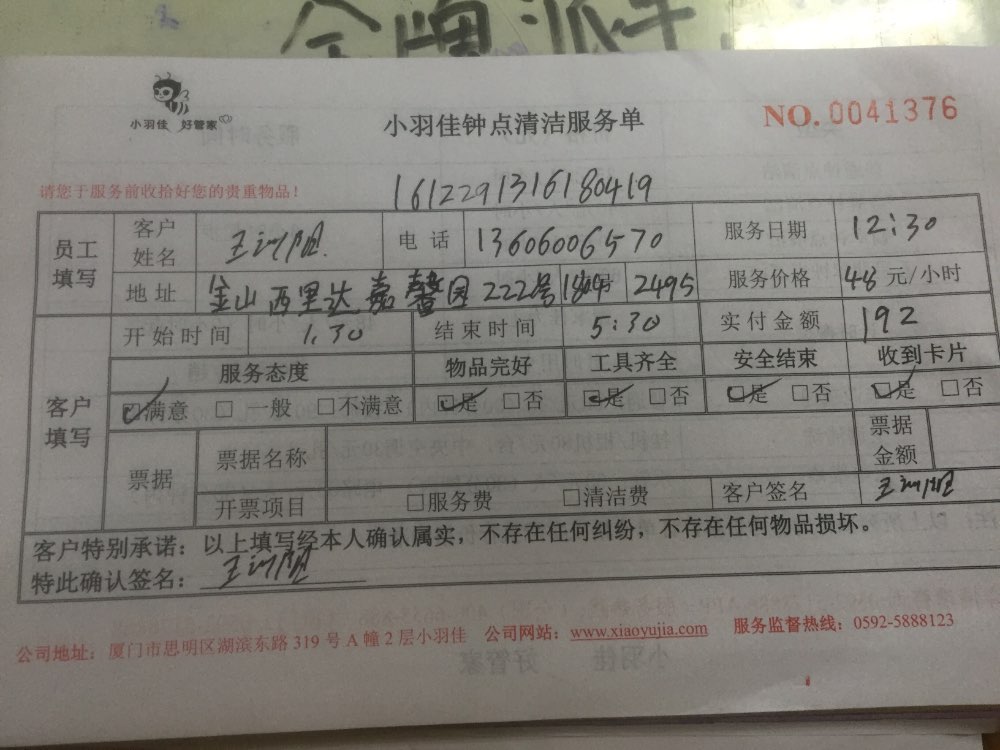 金牌派
小羽佳 好管家
小羽佳钟点清洁服务单
NO. 0041376
请您于服务前收拾好您的贵重物品!
1612291316180419
员工填写 客户姓名 王 电话 13606006570 服务日期 12:30
地址 金山西里达嘉馨园222号 2495 服务价格 48 元/小时
客户填写 开始时间 1.30 结束时间 5:30 实付金额 192
服务态度 物品完好 工具齐全 安全结束 收到卡片
☑满意 □ 一般 □不满意 ☑是 □否 ☑是 □否 ☑是 □否 ☑是 □否
票据 票据名称 票据金额
开票项目 □服务费 □清洁费 客户签名 王
客户特别承诺:以上填写经本人确认属实,不存在任何纠纷,不存在任何物品损坏。
特此确认签名: 王
公司地址:厦门市思明区湖滨东路 319 号 A 幢 2 层小羽佳 公司网站:www.xiaoyujia.com 服务监督热线:0592-5888123